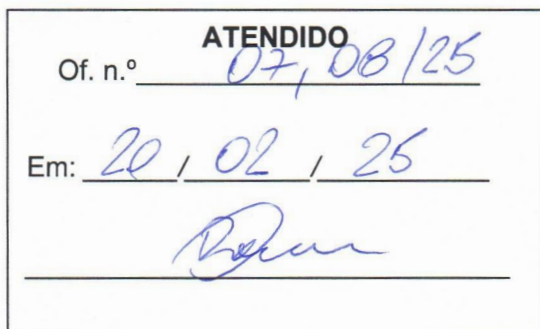 ATENDIDO
Of. n.º 07, 08/25
Em: 20 / 02 / 25